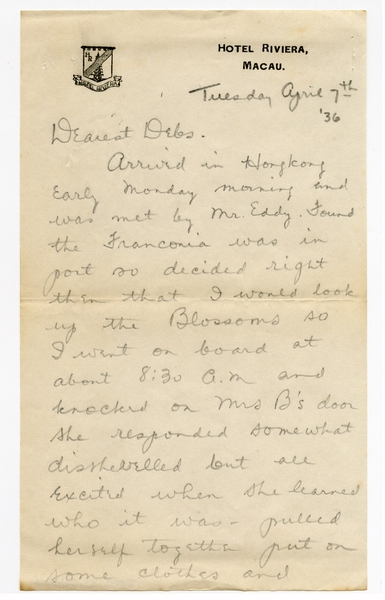 HR
HOTEL RIVIERA
HOTEL RIVIERA,
MACAU.
Tuesday April 7th
'36
Dearest Debs.
Arrived in Hongkong
early Monday morning and
was met by Mr. Eddy. Found
the Franconia was in
port so decided right
then that I would look
up the Blossoms so
I went on board at
about 8:30 A.M and
knocked on Mrs B's door
She responded somewhat
disshevelled but all
excited when she learned
who it was - pulled
herself together put on
some clothes and